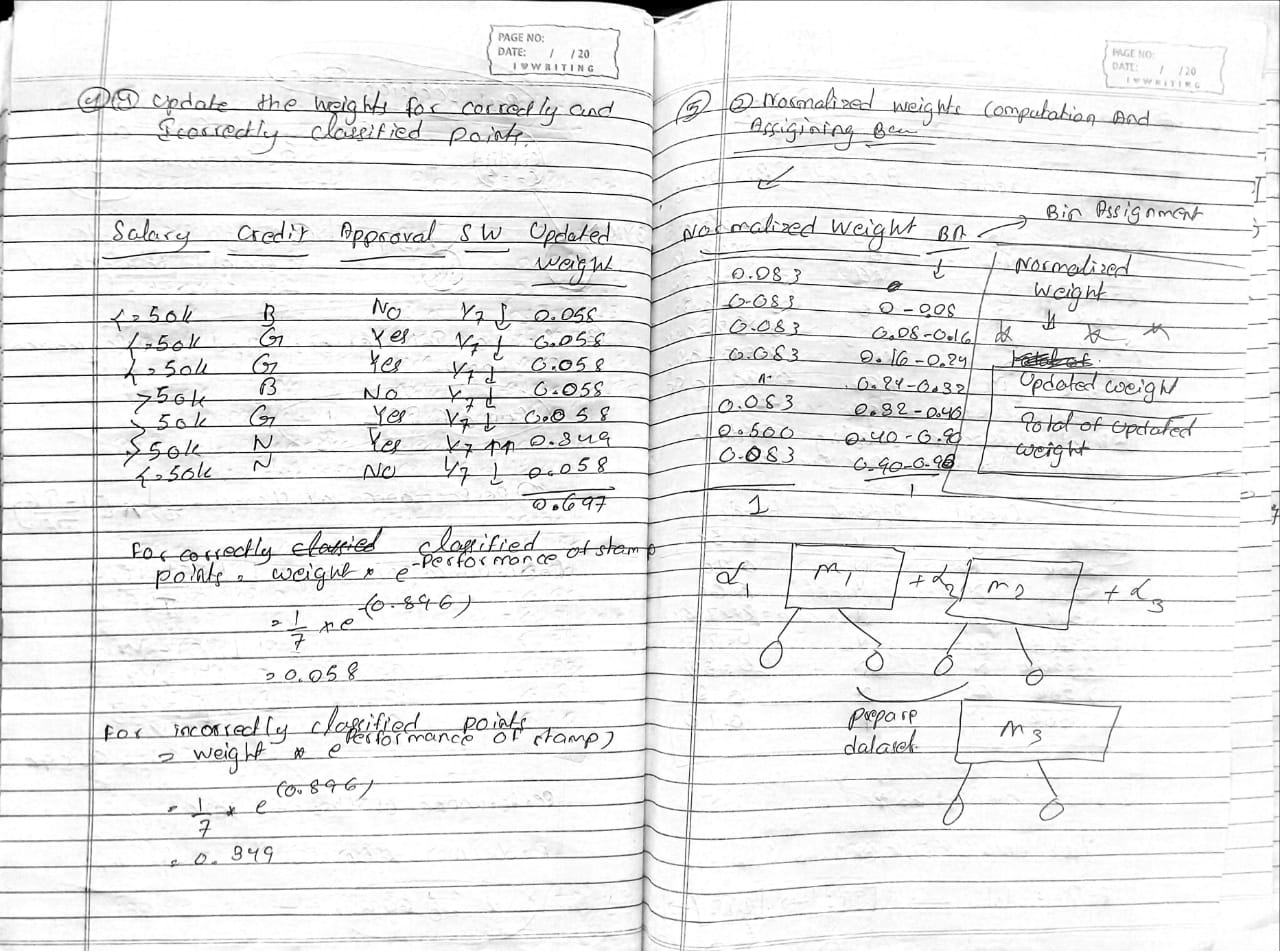 PAGE NO:
DATE: / /20
I ♥ WRITING
④ ① Update the weights for correctly and
Icorrectly classified points.
Salary Credit Approval SW Updated
Weight
<=50k B No 1/7 ↓ 0.058
<=50k G Yes 1/7 ↓ 0.058
<=50k G Yes 1/7 ↓ 0.058
>50k B No 1/7 ↓ 0.058
>50k G Yes 1/7 ↓ 0.058
>50k N Yes 1/7 ↑↑ 0.349
<=50k N No 1/7 ↓ 0.058
0.697
For correctly classified
points = weight * e^-Performance of stamp
= 1/7 * e^-(0.896)
= 0.058
For incorrectly classified points
= weight * e^Performance of stamp)
= 1/7 * e^(0.896)
= 0.349
PAGE NO:
DATE: / /20
I ♥ WRITING
⑤ ② Normalized weights Computation And
Assigining Ben
Normalized Weight BA → Bin Assignment
0.083
0.083 0-0.08
0.083 0.08-0.16
0.083 0.16-0.24
" 0.24-0.32
0.083 0.32-0.40
0.500 0.40-0.90
0.083 0.90-0.98
1
Normalized
Weight
↓
Updated weight
Total of updated
weight
α1 M1 + α2 M2 + α3
prepare
dataset
M3